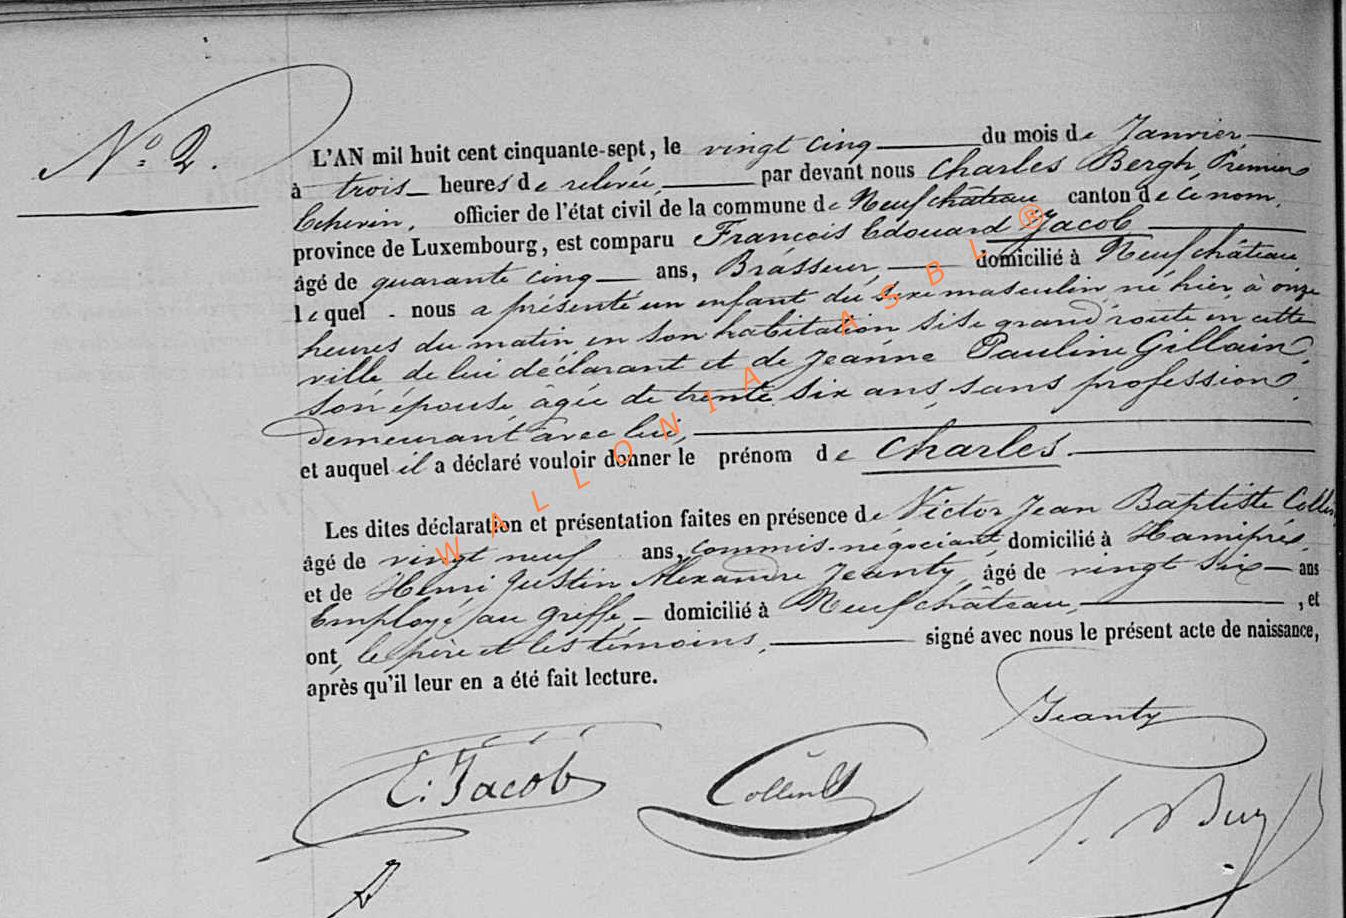 N° 2.
L'AN mil huit cent cinquante-sept, le vingt cinq du mois de Janvier
à trois heures de relevée, par devant nous Charles Bergh, Premier
Echevin, officier de l'état civil de la commune de Neufchâteau canton de ce nom,
province de Luxembourg, est comparu François Edouard Jacob
âgé de quarante cinq ans, Brasseur, domicilié à Neufchâteau
lequel nous a présenté un enfant du sexe masculin, né hier, à onze
heures du matin en son habitation sise grand'route en cette
ville de lui déclarant et de Jeanne Pauline Gillain,
son épouse, âgée de trente six ans, sans profession,
demeurant avec lui,
et auquel il a déclaré vouloir donner le prénom de Charles.
Les dites déclaration et présentation faites en présence de Victor Jean Baptiste Collin,
âgé de vingt neuf ans, commis-négociant, domicilié à Hamipré,
et de Henri Justin Alexandre Jeanty, âgé de vingt six ans
Employé au greffe, domicilié à Neufchâteau, , et
ont, le père et les témoins, signé avec nous le présent acte de naissance,
après qu'il leur en a été fait lecture.
Jeanty
E. Jacob
Collin
WALLONIA ASBL ®